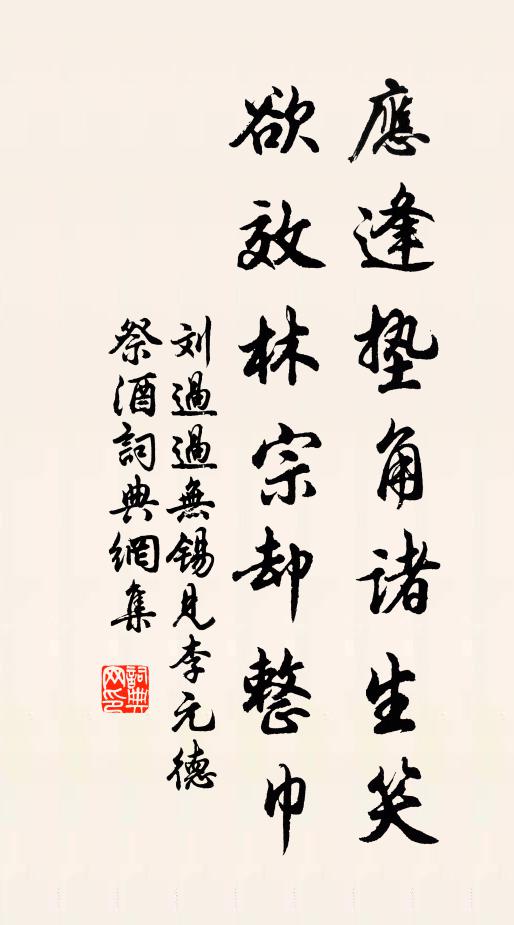 應逢墊角諸生笑
欲效林宗却整巾
刘過過無錫見李元德
祭酒詞典網集
詞典网印